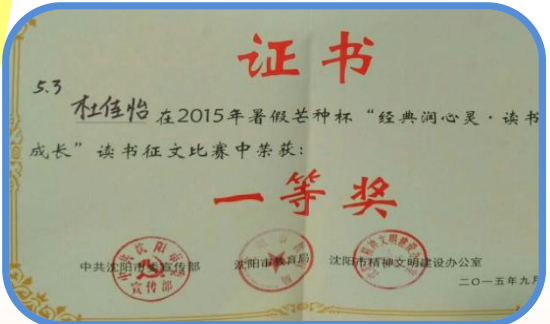 证书
5.3
杜佳怡 在2015年暑假芒种杯“经典润心灵·读书
成长”读书征文比赛中荣获:
一等奖
中共沈阳市委宣传部 沈阳市教育局 沈阳市精神文明建设办公室
二〇一五年九月